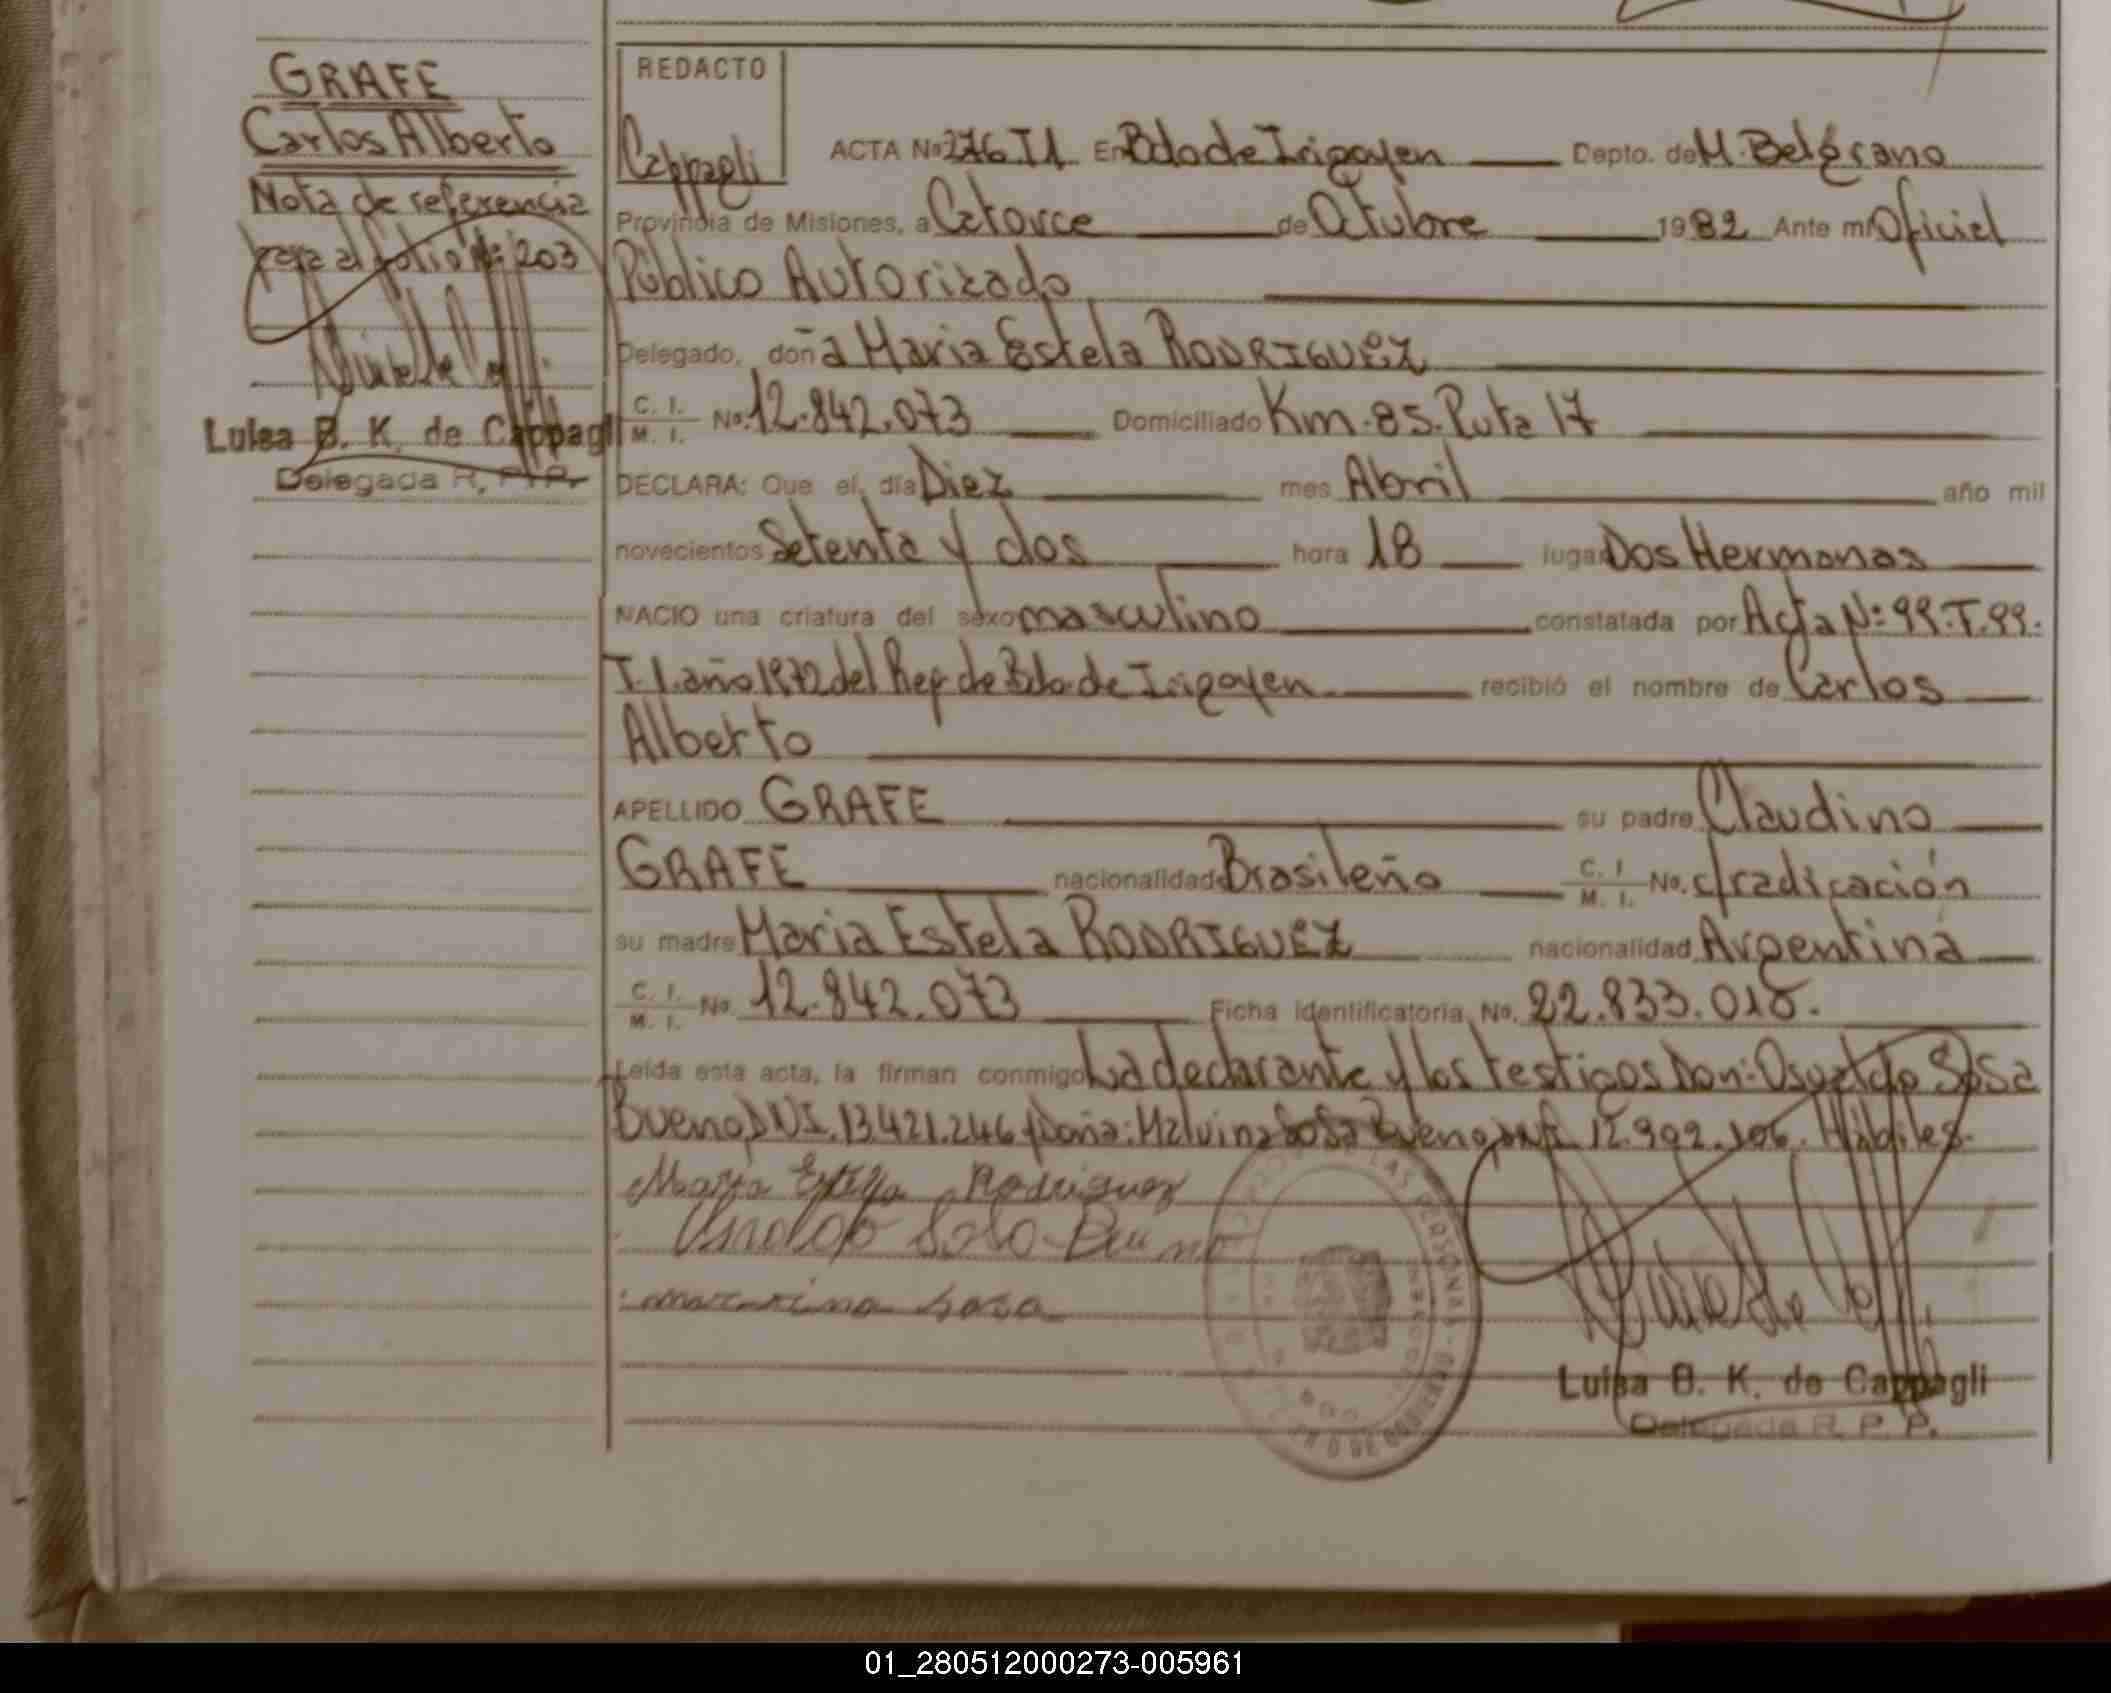 GRAFE
Carlos Alberto
Nota de referencia
para al folio Nº 203
Luisa B. K. de Cappagli
Delegada R. P. P.
REDACTO
Cappagli
ACTA No 276 T1 En Bdo de Irigoyen Depto. de M. Belgrano
Provincia de Misiones, a Catorce de Octubre 1982 Ante mi Oficial
Público Autorizado
Delegado, doña Maria Estela RODRIGUEZ
C. I. M. I. No. 12.842.073 Domiciliado Km. 85. Ruta 17
DECLARA: Que el día Diez mes Abril año mil
novecientos Setenta y dos hora 18 lugar Dos Hermanas
NACIO una criatura del sexo masculino constatada por Acta Nº 99. T. 99.
T. 1. año 1972 del Reg de Bdo. de Irigoyen recibió el nombre de Carlos
Alberto
APELLIDO GRAFE su padre Claudino
GRAFE nacionalidad Brasileño C. I. M. I. No. c/radicación
su madre Maria Estela RODRIGUEZ nacionalidad Argentina
C. I. M. I. No. 12.842.073 Ficha identificatoria No. 22.833.018.
Leida esta acta, la firman conmigo La declarante y los testigos Don: Osvaldo Sosa
Bueno, DNI. 13.421.246 y Doña: Malvina Sosa Bueno, DNI. 12.992.106. Hábiles.
Maria Estela Rodriguez
Osvaldo Sosa Bueno
Sosa
DE LAS PERSONAS
Luisa B. K. de Cappagli
Delegada R. P. P.
01_280512000273-005961